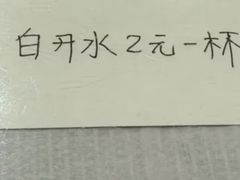 白开水2元一杯